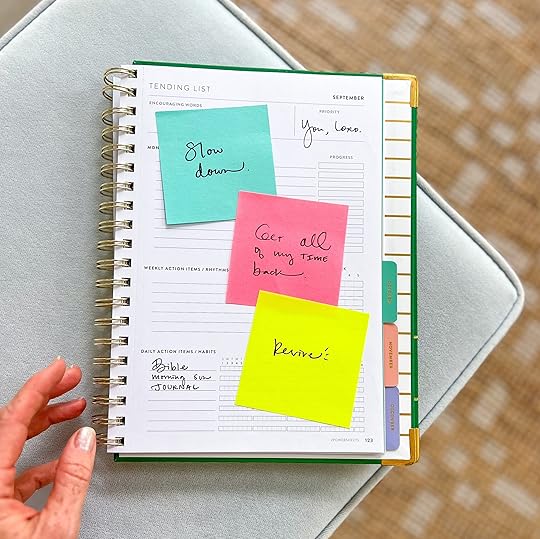 TENDING LIST
SEPTEMBER
ENCOURAGING WORDS
PRIORITY
You,
Slow
down.
MON
PROGRESS
Get all
of my TIME
back.
WEEKLY ACTION ITEMS / RHYTHMS
Revive!
DAILY ACTION ITEMS / HABITS
Bible
morning sun
JOURNAL
#POWERSHEETS 123
OCTOBER
NOVEMBER
DECEMBER